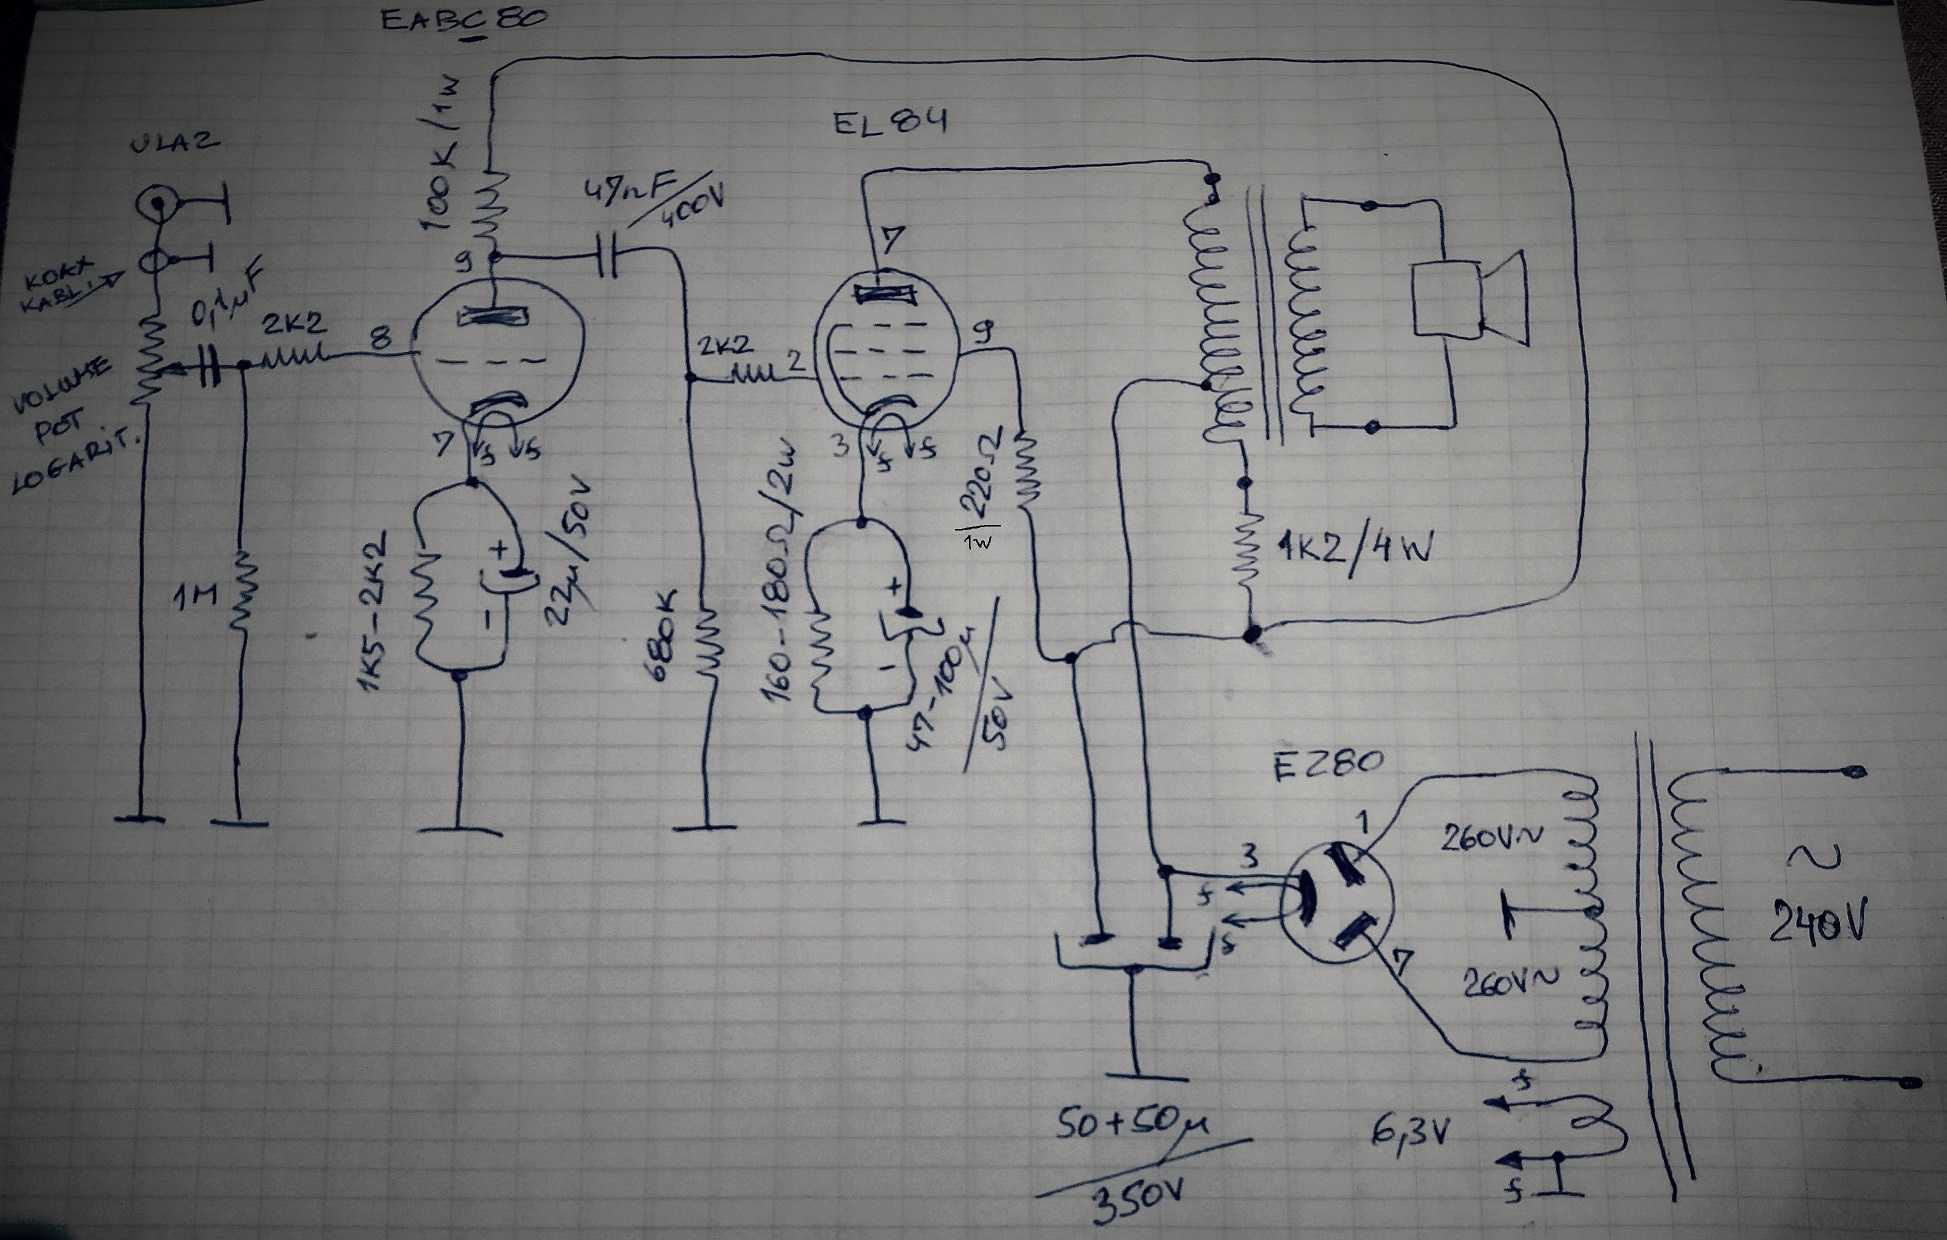 EABC80
100K/1W
ULAZ
KOAX
KABL.
0,1µF
2K2
8
9
47nF/400V
EL84
7
2K2
2
9
VOLUME
POT
LOGARIT.
7
f
f
3
f
f
220Ω
1W
1M
1K5-2K2
22µ/50V
680K
160-180Ω/2W
47-100µ
50V
1K2/4W
EZ80
1
3
f
f
7
260V~
260V~
~
240V
50+50µ
350V
6,3V
f
f